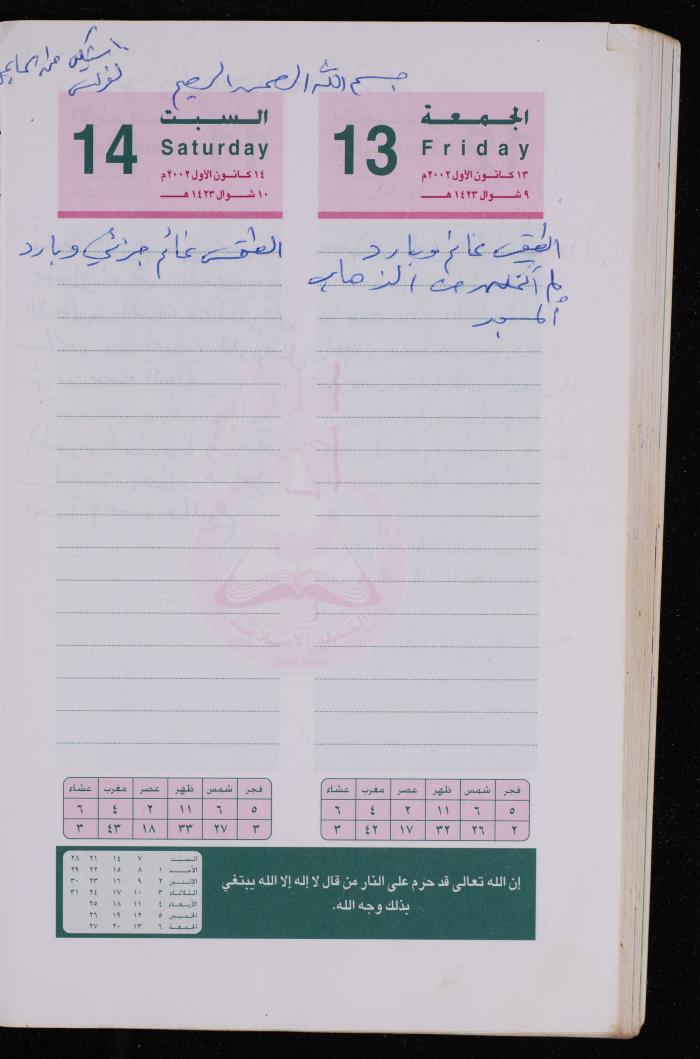 بسم الله الرحمن الرحيم
الجمعة
13
Friday
١٣ كانون الأول ٢٠٠٢م
٩ شوال ١٤٢٣ هـ
الطقس غائم وبارد
لم أتمكن من الذهاب
المسجد
السبت
14
Saturday
١٤ كانون الأول ٢٠٠٢م
١٠ شوال ١٤٢٣ هـ
الطقس غائم جزئي وبارد
الكتلة الإسلامية
فجر شمس ظهر عصر مغرب عشاء
٥ ٦ ١١ ٢ ٤ ٦
٢ ٢٦ ٣٢ ١٧ ٤٢ ٣
فجر شمس ظهر عصر مغرب عشاء
٥ ٦ ١١ ٢ ٤ ٦
٣ ٢٧ ٣٣ ١٨ ٤٣ ٣
إن الله تعالى قد حرم على النار من قال لا إله إلا الله يبتغي
بذلك وجه الله.
السبت ٧ ١٤ ٢١ ٢٨
الأحد ١ ٨ ١٥ ٢٢ ٢٩
الإثنين ٢ ٩ ١٦ ٢٣ ٣٠
الثلاثاء ٣ ١٠ ١٧ ٢٤ ٣١
الأربعاء ٤ ١١ ١٨ ٢٥
الخميس ٥ ١٢ ١٩ ٢٦
الجمعة ٦ ١٣ ٢٠ ٢٧